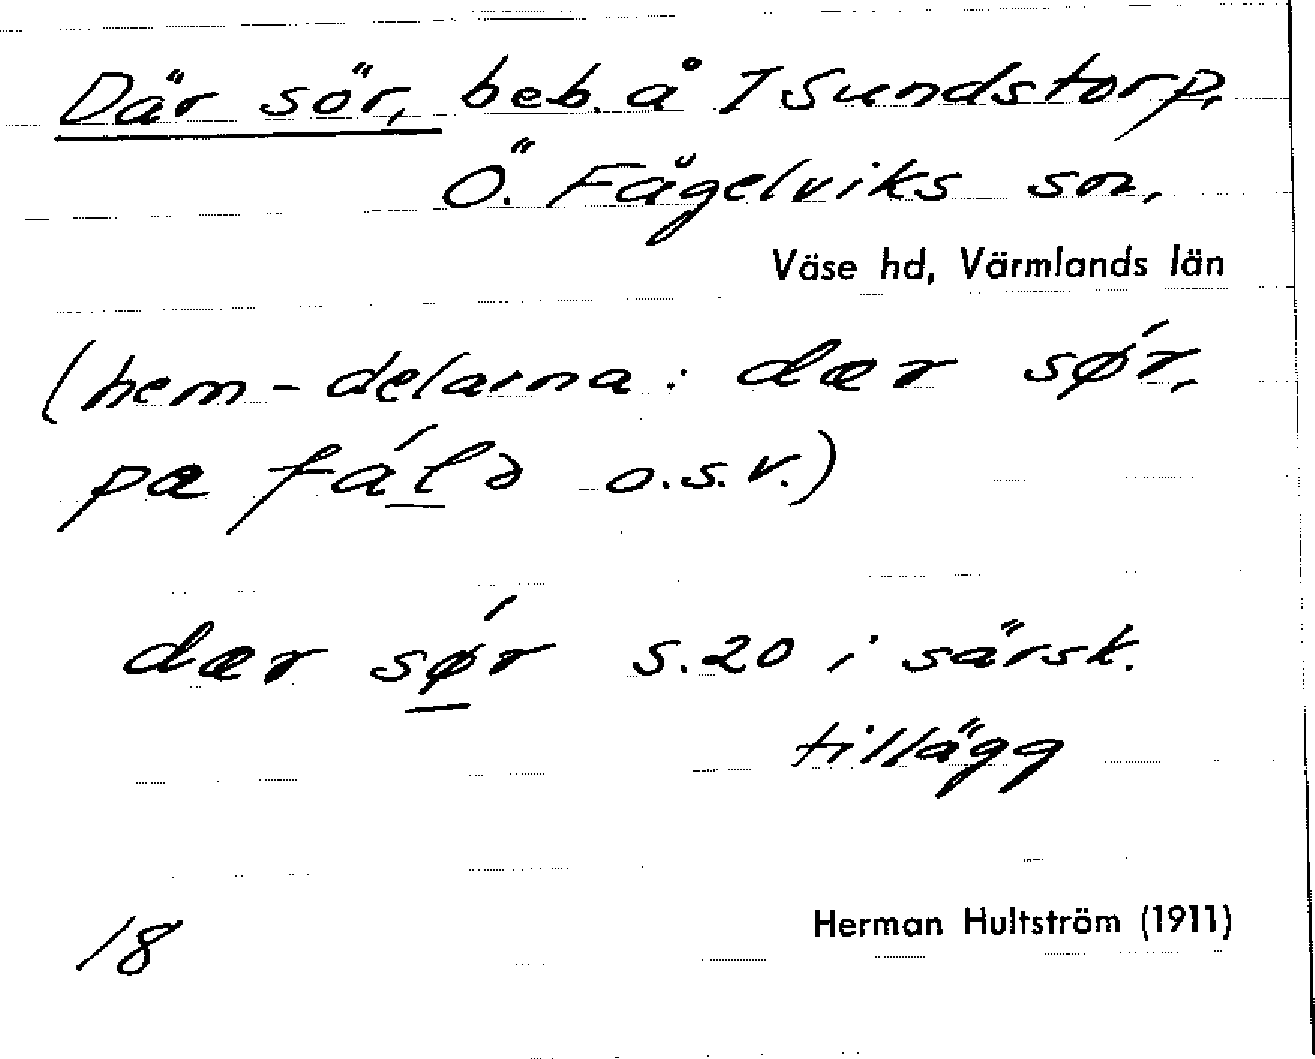 Där sör, beb. å Isundstorp,
Ö. Fågelviks sn,
Väse hd, Värmlands län
(hem-delarna: dær sǿr,
pæ fálə o.s.v.)
dær sǿr s. 20 i särsk.
tillägg
18
Herman Hultström (1911)